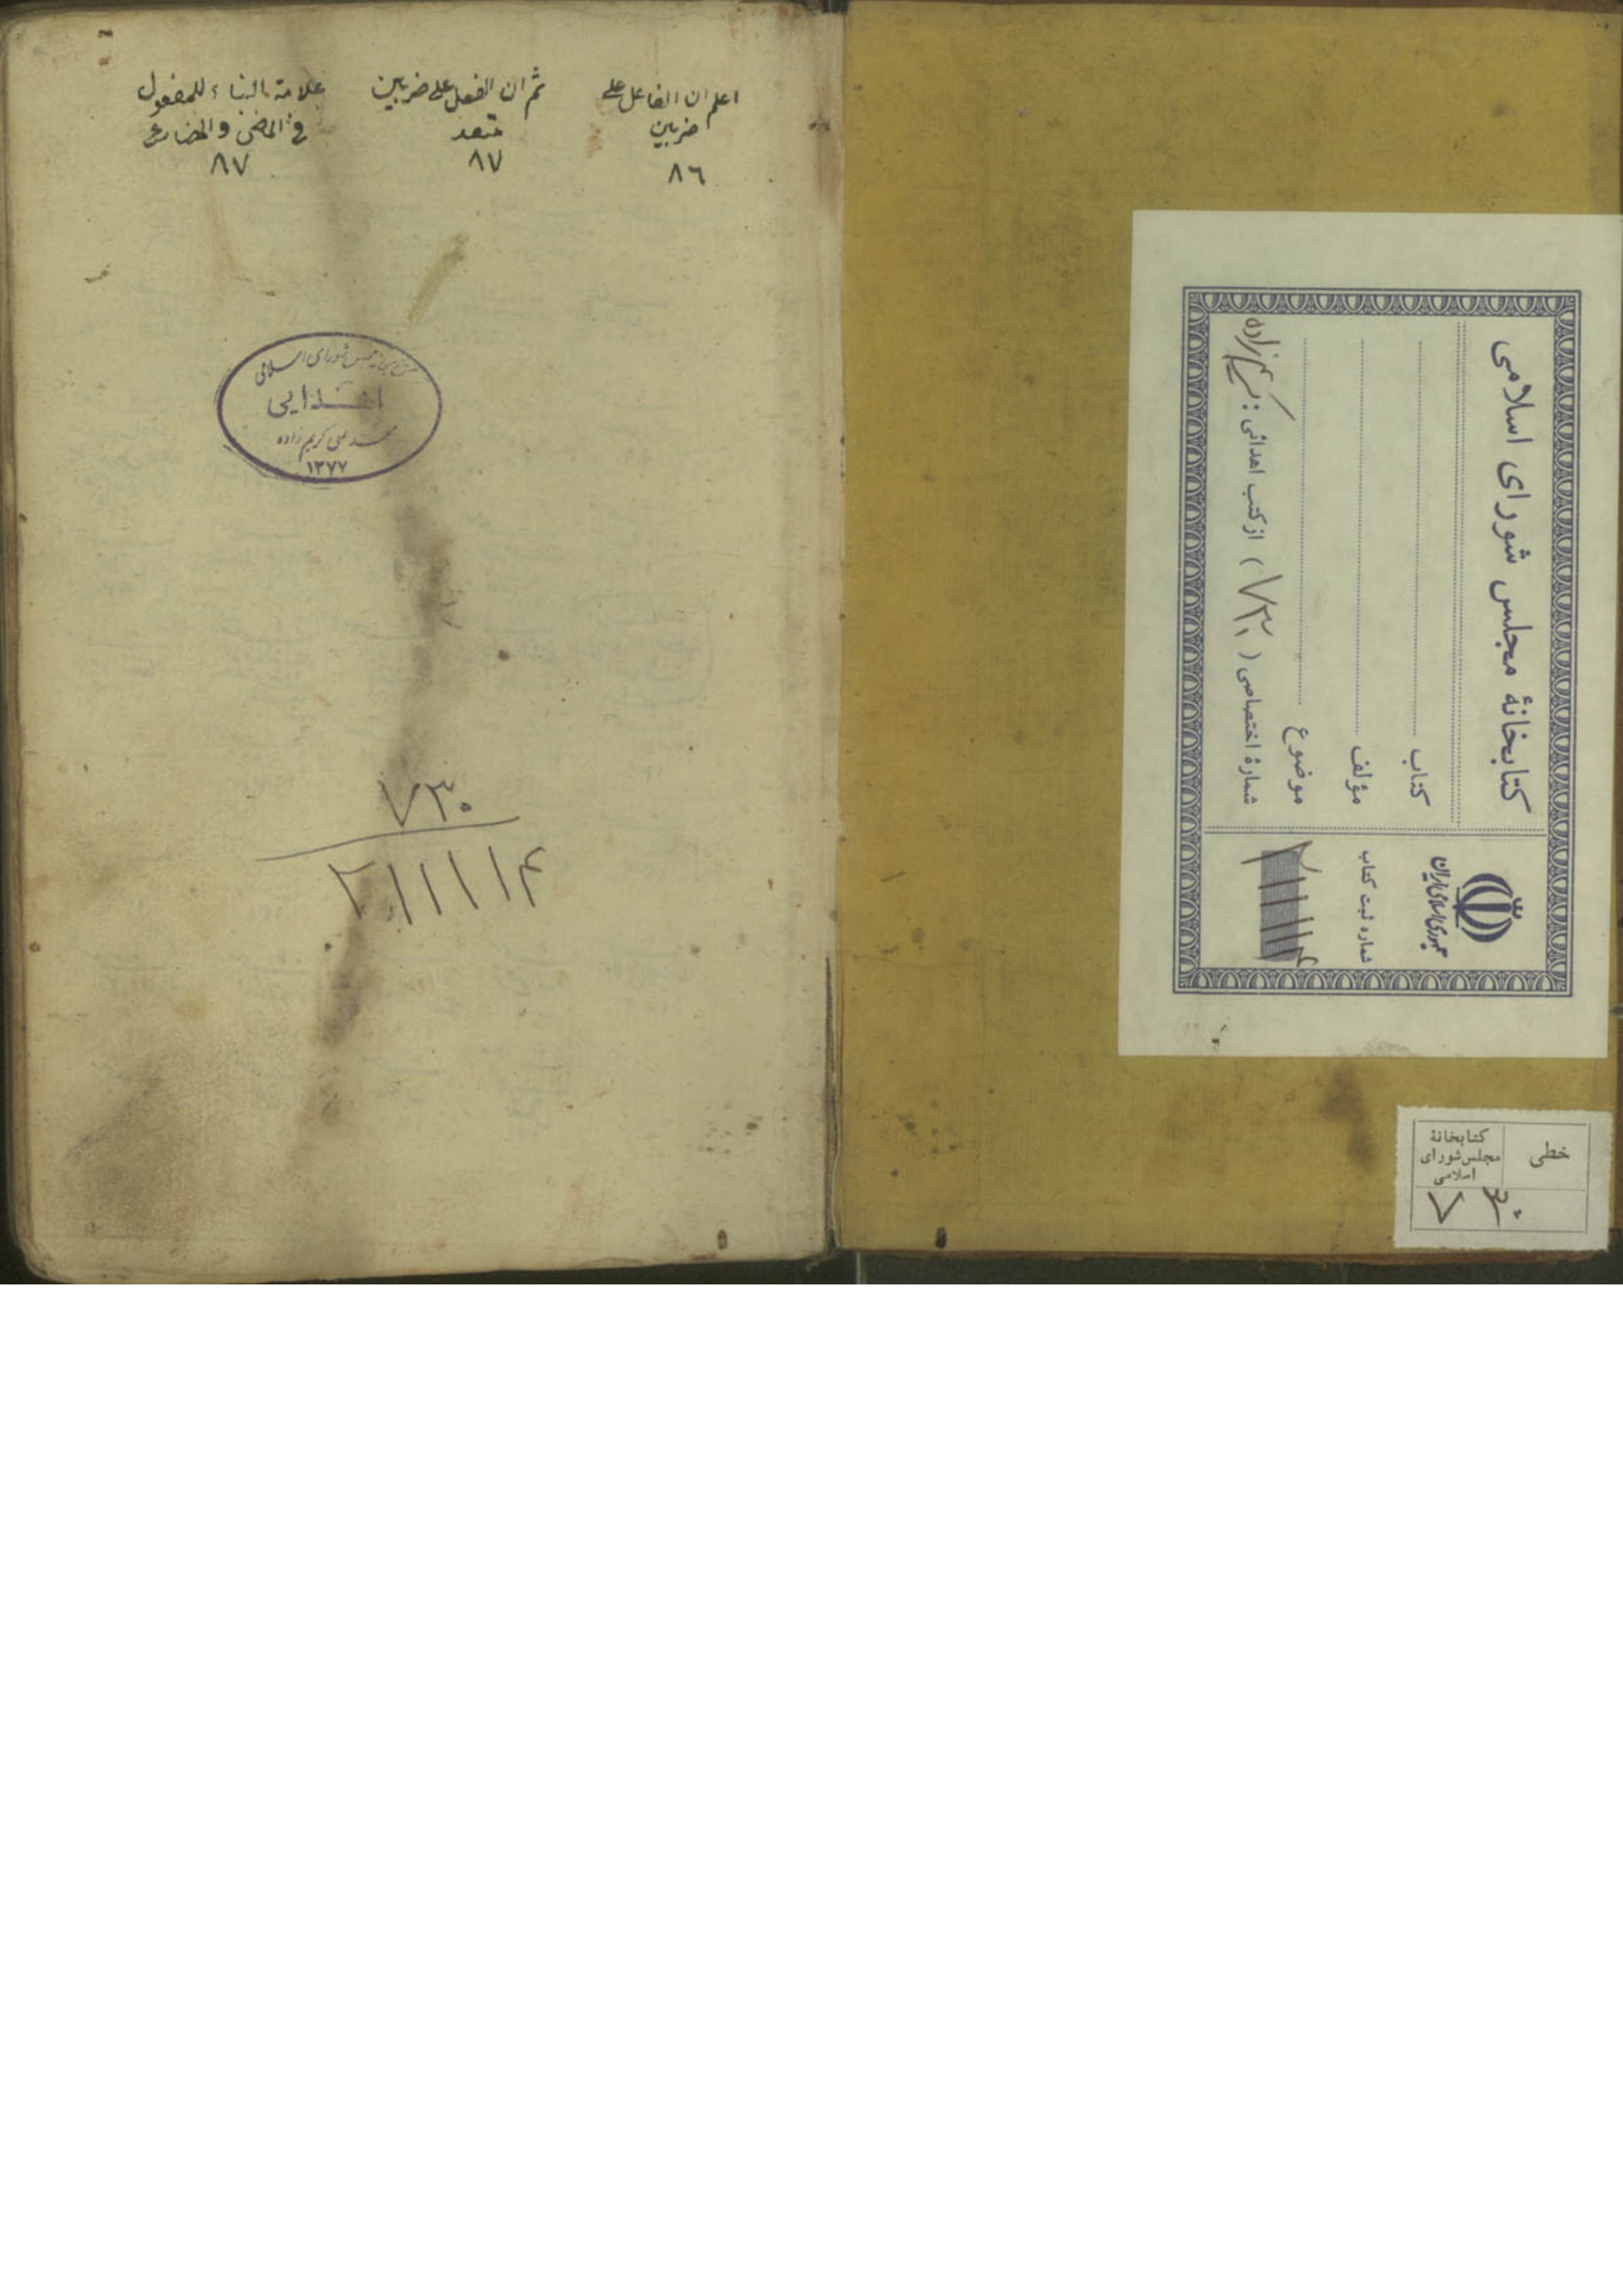 اعلم ان الفاعل على
ضربين
٨٦
ثم ان الفعل على ضربين
متعد
٨٧
علامة البناء للمفعول
فى الماضى والمضارع
٨٧
مجلس شورای اسلامی
اهدایی
محمد علی کریم زاده
۱۳۷۷
۷۳۰
۲۱۱۱۱۴
کتابخانهٔ مجلس شورای اسلامی
کتاب
مؤلف
موضوع
شمارهٔ اختصاصی ( ۷۳۰ ) از کتب اهدائی : کریم‌زاده
جمهوری اسلامی ایران
شماره ثبت کتاب
۲۱۱۱۱۴
خطی
کتابخانهٔ
مجلس شورای
اسلامی
۷۳۰